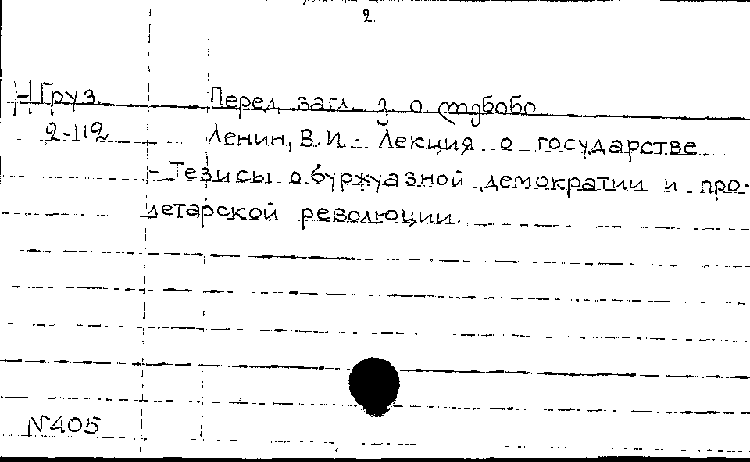 2.
Груз. Перед загл.
2-112 Ленин, В. И. - Лекция о государстве
- Тезисы о буржуазной демократии и про-
летарской революции.
N405